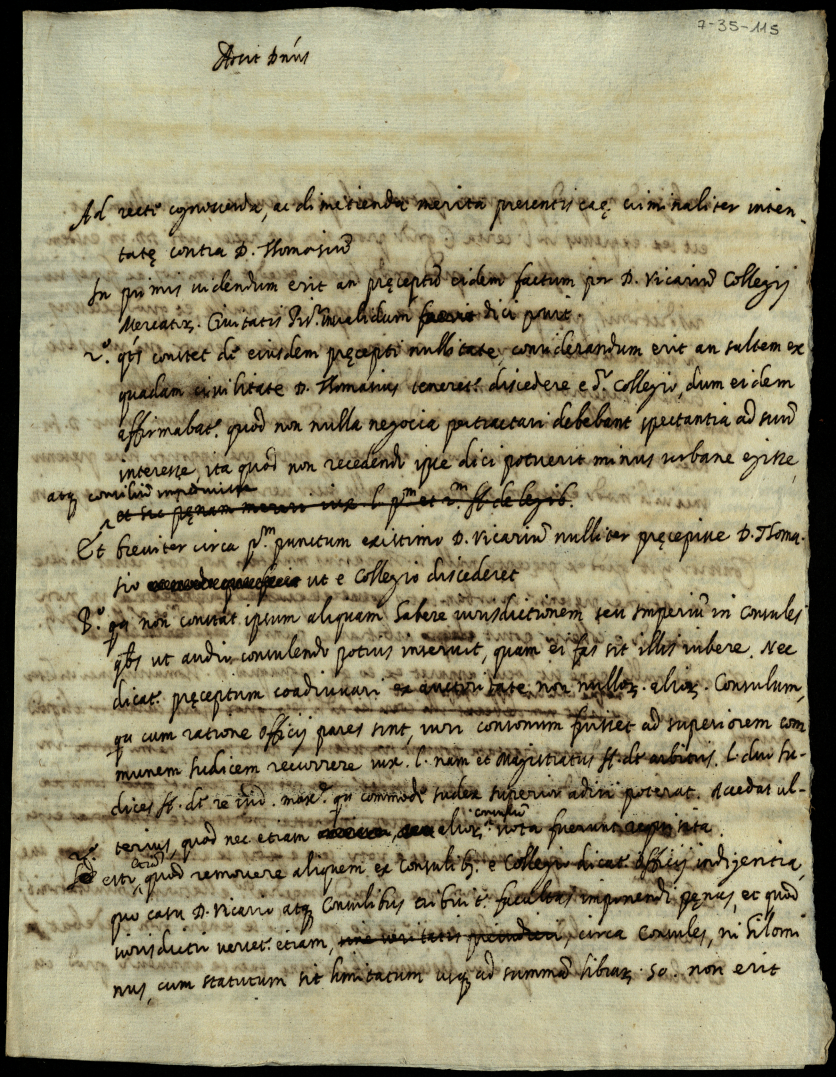 7-35-115
Adsit Dñus
Ad recte cognoscenda, ac dimetienda merita presentis caę criminaliter inten-
tatę contra D. Thomasiũ
In primis videndum erit an pręceptũ eidem factum per D. Vicariũ Collegij
Mercatoꝝ. Civitatis invalidum fuerit dici possit.
2.º constet de eiusdem pręcepti nullitate, considerandum erit an saltem ex
quadam civilitate D. Thomasius teneret. discedere e d.º Collegio, dum eidem
affirmabat. quod non nulla negocia pertractari debebant spectantia ad suũ
interesse, ita quod non recedendo ipse dici potuerit minus urbane egisse,
atq consiliũ
et sic pęnam mereri iux. l. p.m et 2.m ff. de legib.
Et breviter circa p.m punctum existimo D. Vicariũ nulliter pręcepisse D. Thoma-
sio ut e Collegio discederet
P.º qa non constat ipsum aliquam habere iurisdictionem seu Imperiũ in Consules
qbs ut audio consulendo potius inservit, quam ei fas sit illis iubere. Nec
dicat. pręceptum coadiuvari ex auctoritate non nulloꝝ. alioꝝ. Consulum,
qa cum ratione Officij pares sint, iuri consonum fuisset ad superiorem com
munem Iudicem recurrere iux. l. nam et Magistratus ff. de arbitris. l. duo Iu-
dices ff. de re iud. max.e qa commode Iudex superior adiri poterat. Accedat ul-
terius, quod nec etiam alioꝝ consulũ vota fuerunt requisita.
etsi, quod removere aliquem ex Consulib. e Collegio dicat. Officij indigentia,
quo casu D. Vicario atq Consulibus tribuit. facultas imponendi pęnas, et quod
iurisdictio verset. etiam, circa Consules, nihilomi
nus, cum statutum sit limitatum usq ad summã libraꝝ. 50. non erit